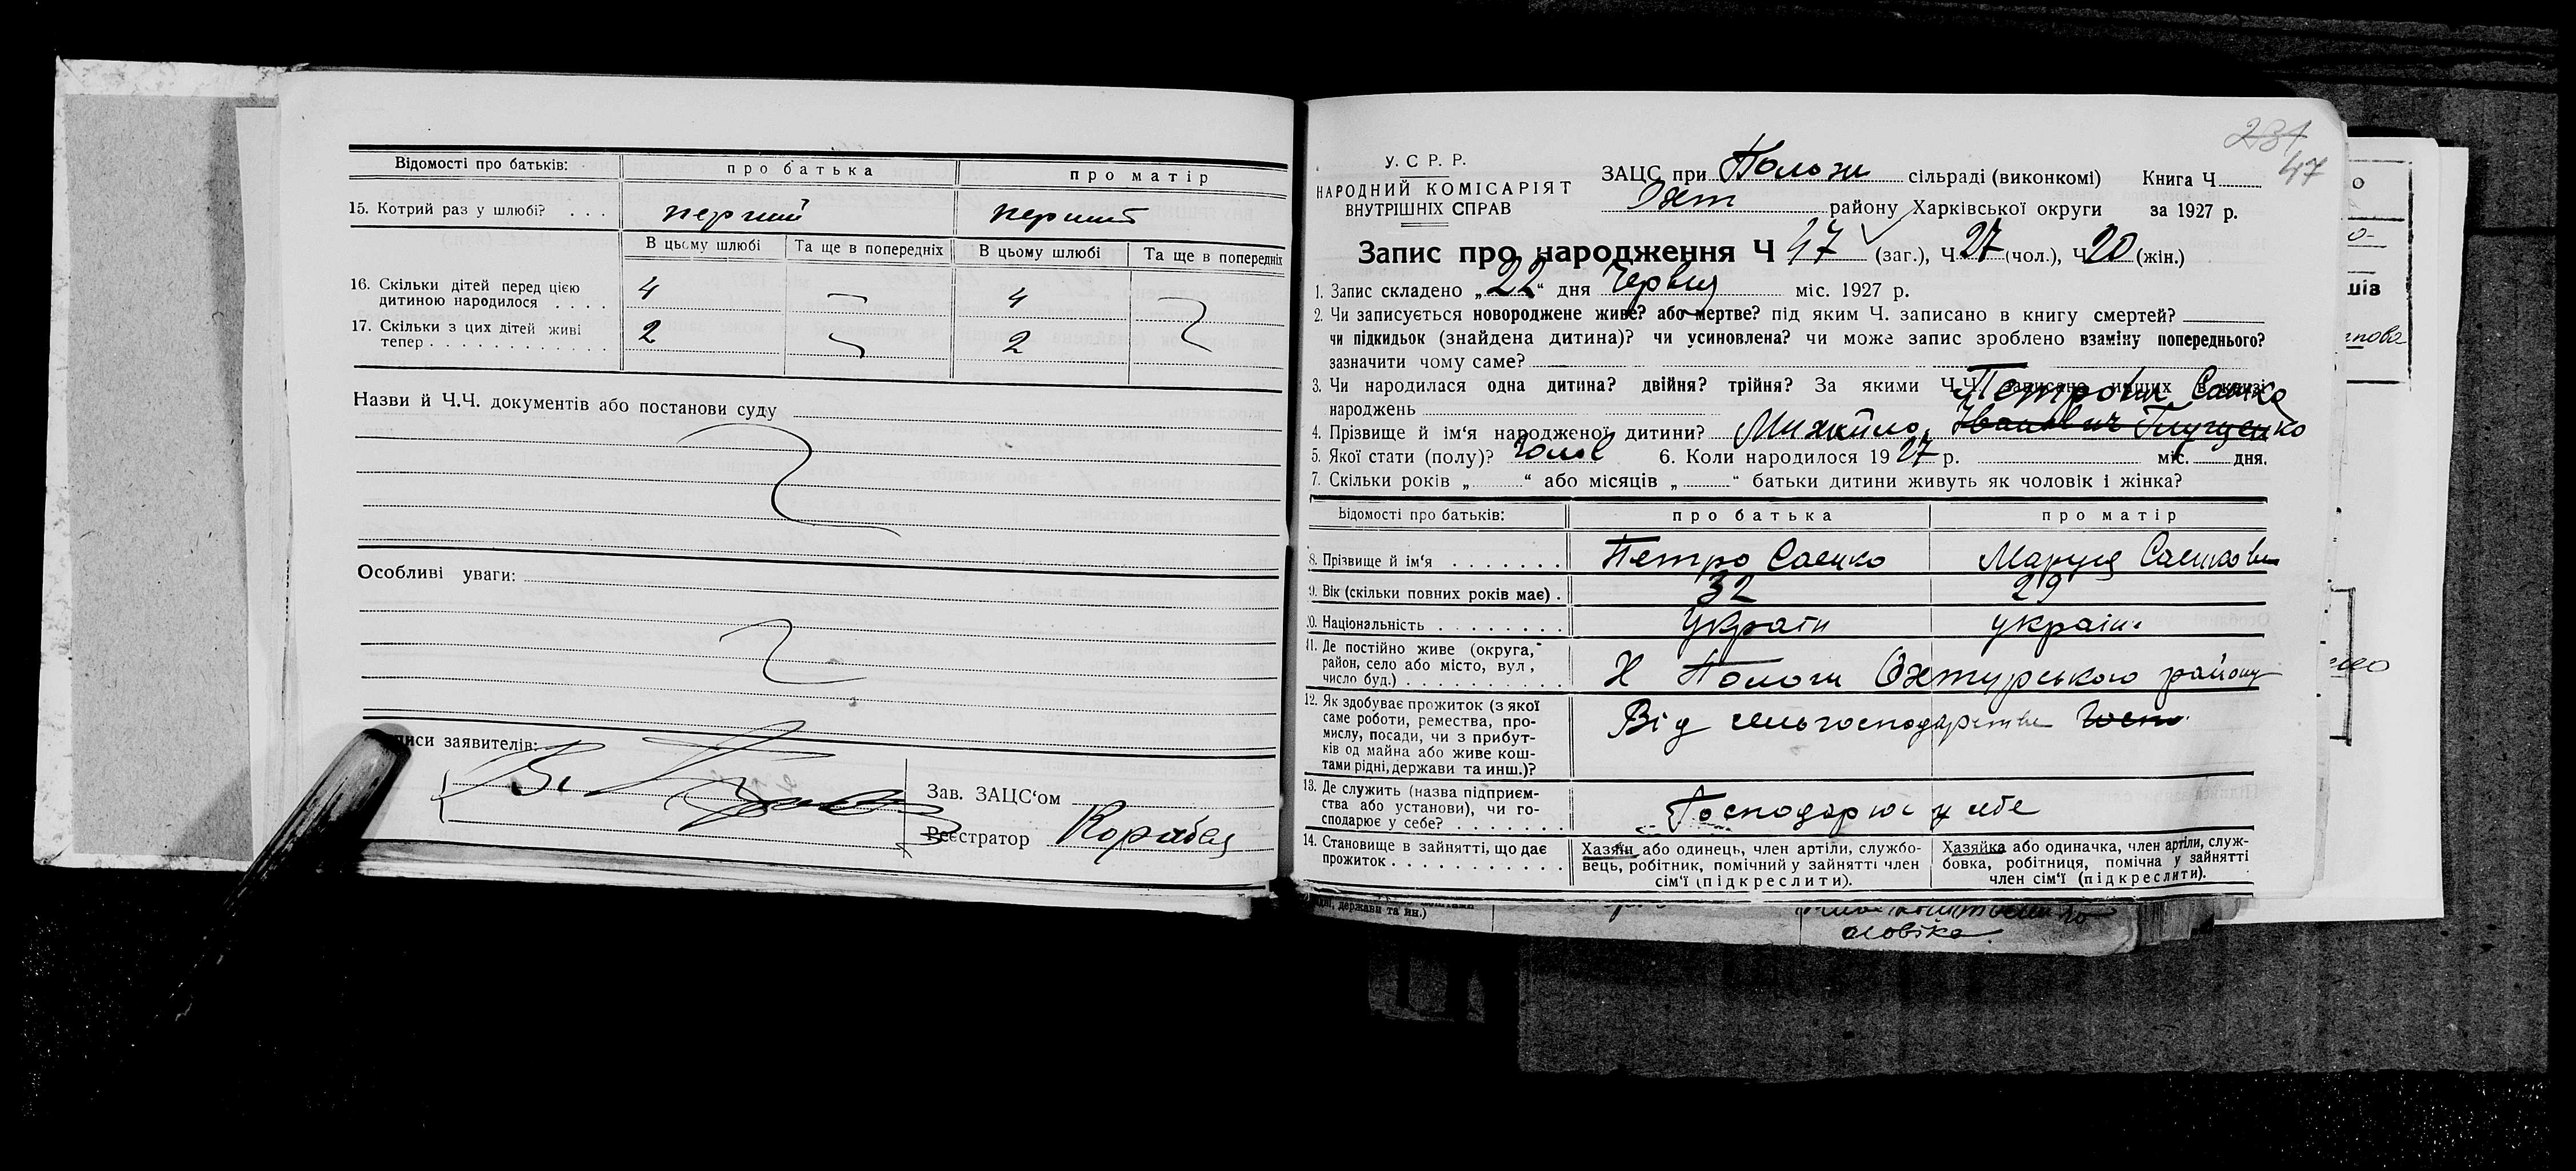 Відомості про батьків: про батька про матір
15. Котрий раз у шлюбі? . . . перший перший
В цьому шлюбі Та ще в попередніх В цьому шлюбі Та ще в попередніх
16. Скільки дітей перед цією
дитиною народилося . . . . 4 4
17. Скільки з цих дітей живі
тепер . . . . . . . . . . . . 2 2
Назви й Ч.Ч. документів або постанови суду
Особливі уваги:
писи заявителів:
Зав. ЗАЦС‘ом
Реєстратор Корабец
231
47
У. С Р. Р.
НАРОДНИЙ КОМІСАРІЯТ
ВНУТРІШНІХ СПРАВ
ЗАЦС при Положи сільраді (виконкомі) Книга Ч.
Охт району Харківської округи за 1927 р.
Запис про народження Ч 47 (заг.), Ч 27 (чол.), Ч 20 (жін.)
1. Запис складено „22“ дня Червня міс. 1927 р.
2. Чи записується новороджене живе? або мертве? під яким Ч. записано в книгу смертей?
чи підкидьок (знайдена дитина)? чи усиновлена? чи може запис зроблено взаміну попереднього?
зазначити чому саме?
3. Чи народилася одна дитина? двійня? трійня? За якими Ч.Ч. записано инших в книзі
народжень
Петрович Саенко
4. Прізвище й ім‘я народженої дитини? Михайло Іванович Глущенко
5. Якої стати (полу)? Чолов 6. Коли народилося 1927 р. міс. дня.
7. Скільки років „ “ або місяців „ “ батьки дитини живуть як чоловік і жінка?
Відомості про батьків: про батька про матір
8. Прізвище й ім‘я . . . . . . . Петро Саенко Маруся Саенкова
9. Вік (скільки повних років має) . 32 29
10. Національність . . . . . . . . Україн україн.
11. Де постійно живе (округа,
район, село або місто, вул,
число буд.) . . . . . . . . . . Х Пологи Охтурського району
12. Як здобуває прожиток (з якої
саме роботи, ремества, про-
мислу, посади, чи з прибут-
ків од майна або живе кош-
тами рідні, держави та инш.)? Від сельгосподарства
13. Де служить (назва підприєм-
ства або установи), чи го-
сподарює у себе? . . . . . . . Господарює у себе
14. Становище в зайнятті, що дає
прожиток . . . . . . . . . . .
Хазяїн або одинець, член артіли, службо-
вець, робітник, помічний у зайнятті член
сім‘ї (підкреслити).
Хазяйка або одиначка, член артіли, служ-
бовка, робітниця, помічна у зайнятті
член сім‘ї (підкреслити).
держави та ин.)